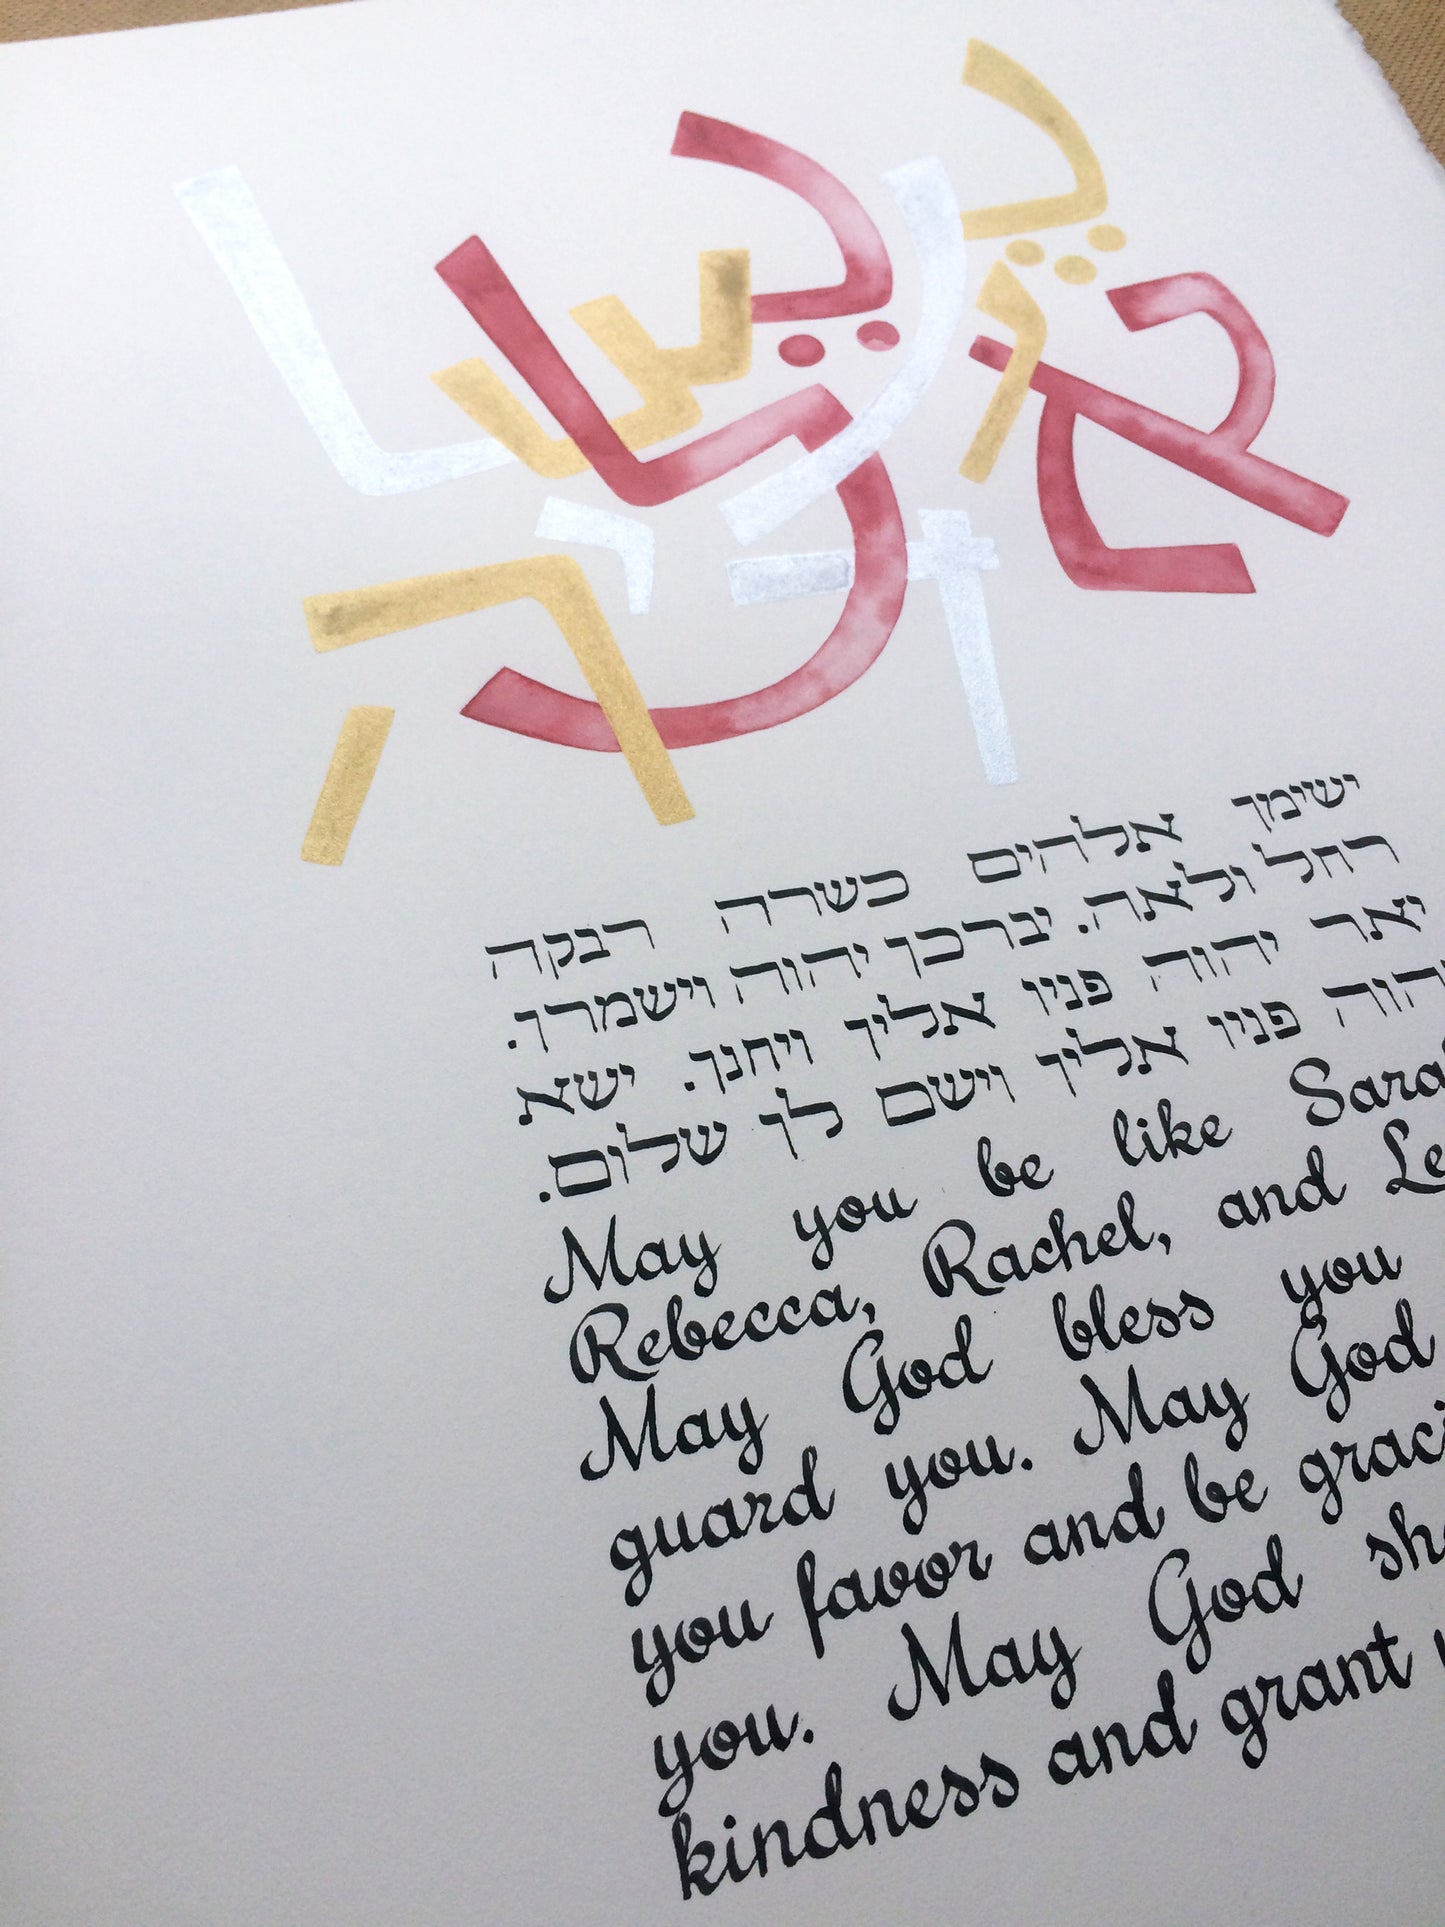 ישימך אלהים כשרה רבקה
רחל ולאה. יברכך יהוה וישמרך.
יאר יהוה פניו אליך ויחנך. ישא
יהוה פניו אליך וישם לך שלום.
May you be like
Rebecca, Rachel, and
May God bless you
guard you. May God
you favor and be
you. May God
kindness and grant